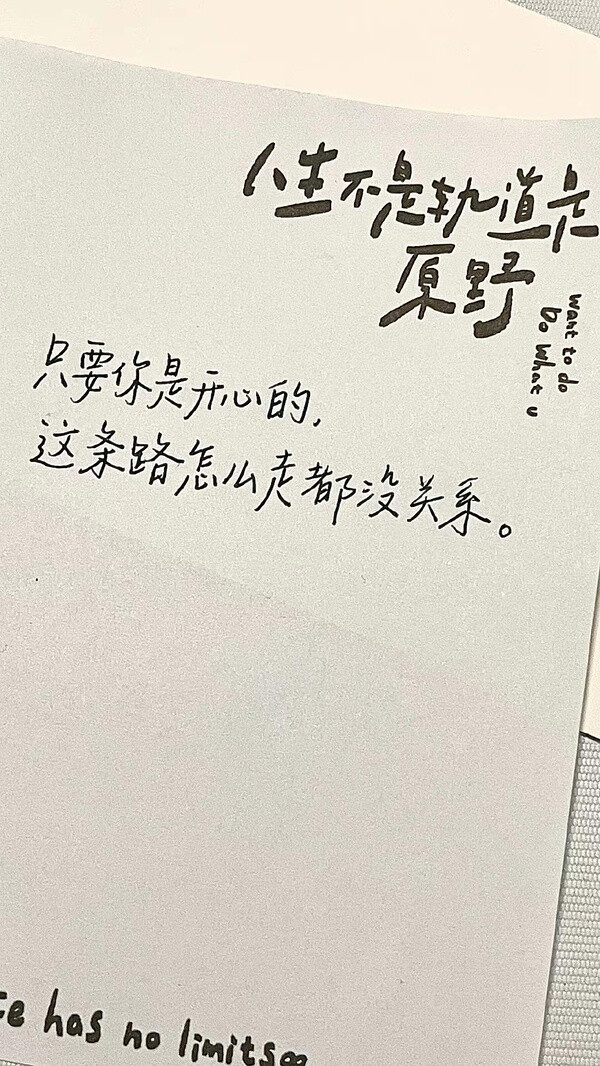 人生不是轨道是
原野
Do What u
want to do
只要你是开心的,
这条路怎么走都没关系。
has no limits∞